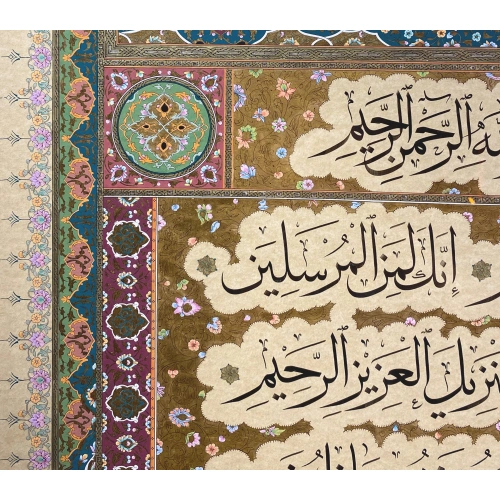 الرَّحْمٰنِ الرَّحِيمِ
إِنَّكَ لَمِنَ الْمُرْسَلِينَ
تَنْزِيلَ الْعَزِيزِ الرَّحِيمِ